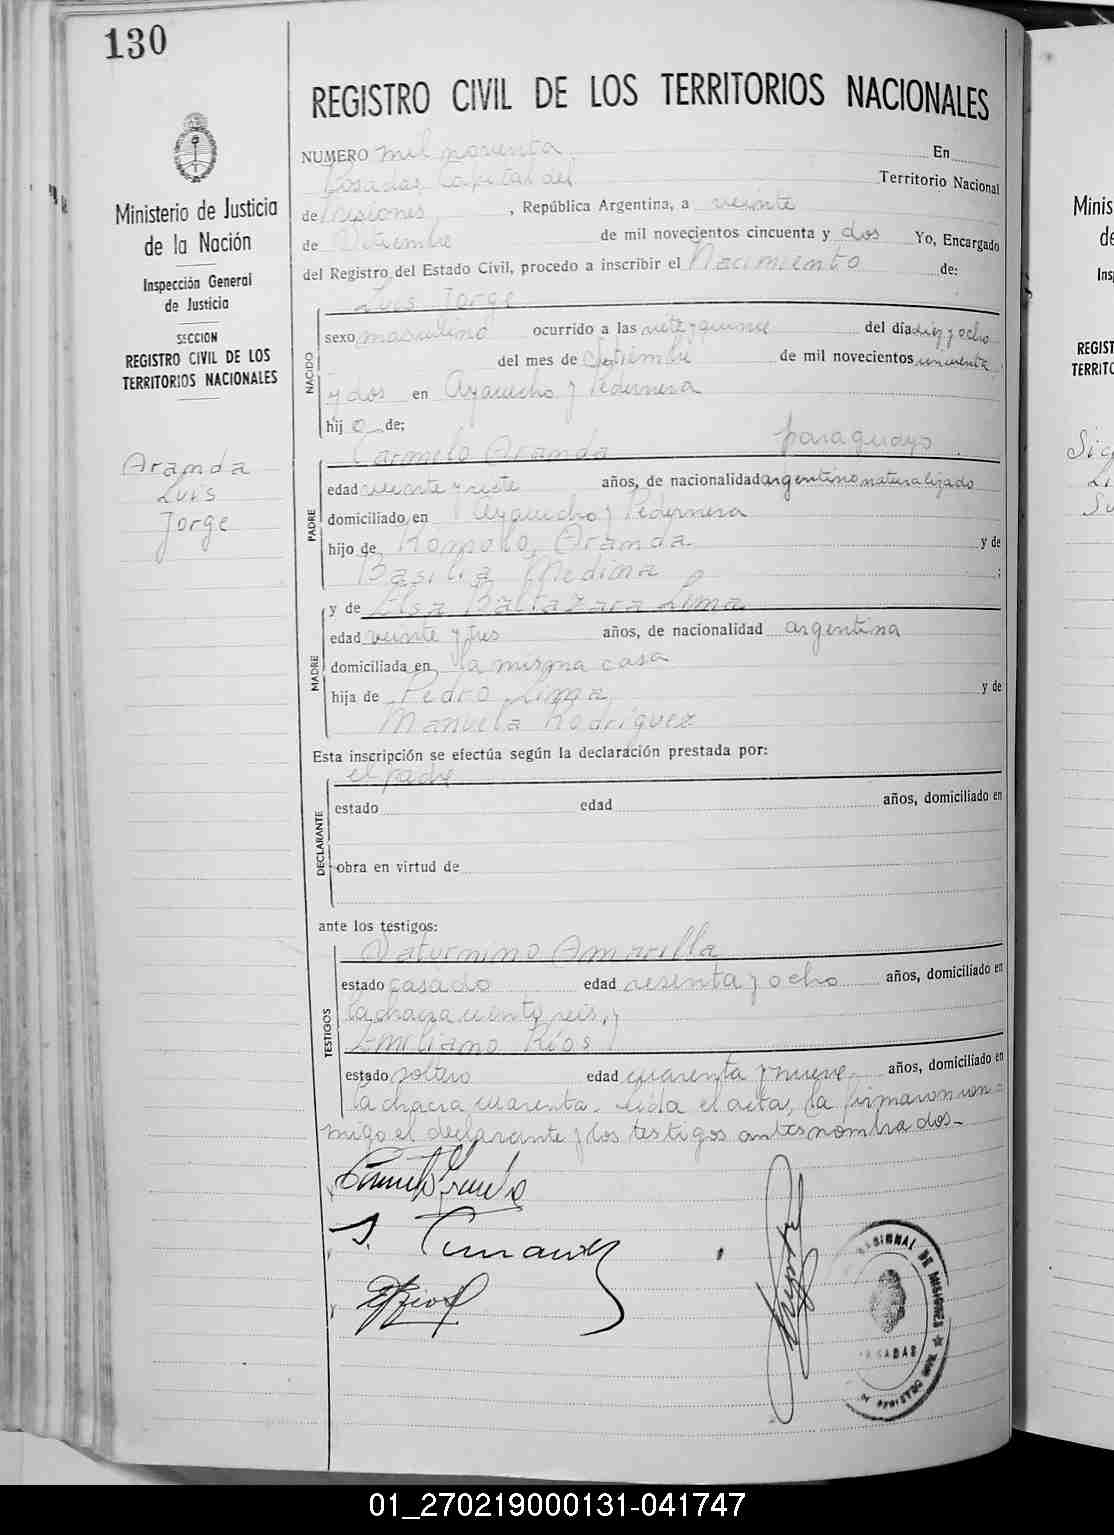 130
REGISTRO CIVIL DE LOS TERRITORIOS NACIONALES
Ministerio de Justicia
de la Nación
Inspección General
de Justicia
SECCION
REGISTRO CIVIL DE LOS
TERRITORIOS NACIONALES
Aranda
Luis
Jorge
NUMERO mil noventa En
Posadas, Capital del Territorio Nacional
de Misiones, , República Argentina, a veinte
de Setiembre de mil novecientos cincuenta y dos Yo, Encargado
del Registro del Estado Civil, procedo a inscribir el Nacimiento de:
Luis Jorge
NACIDO
sexo masculino ocurrido a las siete y quince del día diez y ocho
del mes de Setiembre de mil novecientos cincuenta
y dos en Ayacucho y Pedernera
hij o de:
Carmelo Aranda paraguayo
PADRE
edad veinte y siete años, de nacionalidad argentino naturalizado
domiciliado en Ayacucho y Pedernera
hijo de Aranda y de
Basilia Medina ;
y de Elsa Baltazara Lima
MADRE
edad veinte y tres años, de nacionalidad argentina
domiciliada en la misma casa
hija de Pedro Lima y de
Manuela Rodríguez
Esta inscripción se efectúa según la declaración prestada por:
el padre
DECLARANTE
estado edad años, domiciliado en
obra en virtud de
ante los testigos:
Saturnino Amarilla
TESTIGOS
estado casado edad sesenta y ocho años, domiciliado en
la chacra ciento seis, y
Emiliano Ríos
estado soltero edad cuarenta y nueve años, domiciliado en
la chacra cuarenta. Leída el acta, la firmaron con=
migo el declarante y los testigos antes nombrados.-
REGIONAL DE MISIONES
POSADAS
01_270219000131-041747